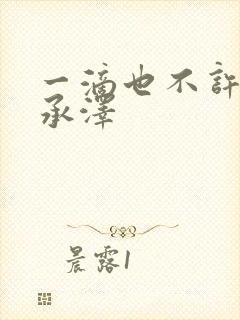 一滴也不許
承澤
晨露1